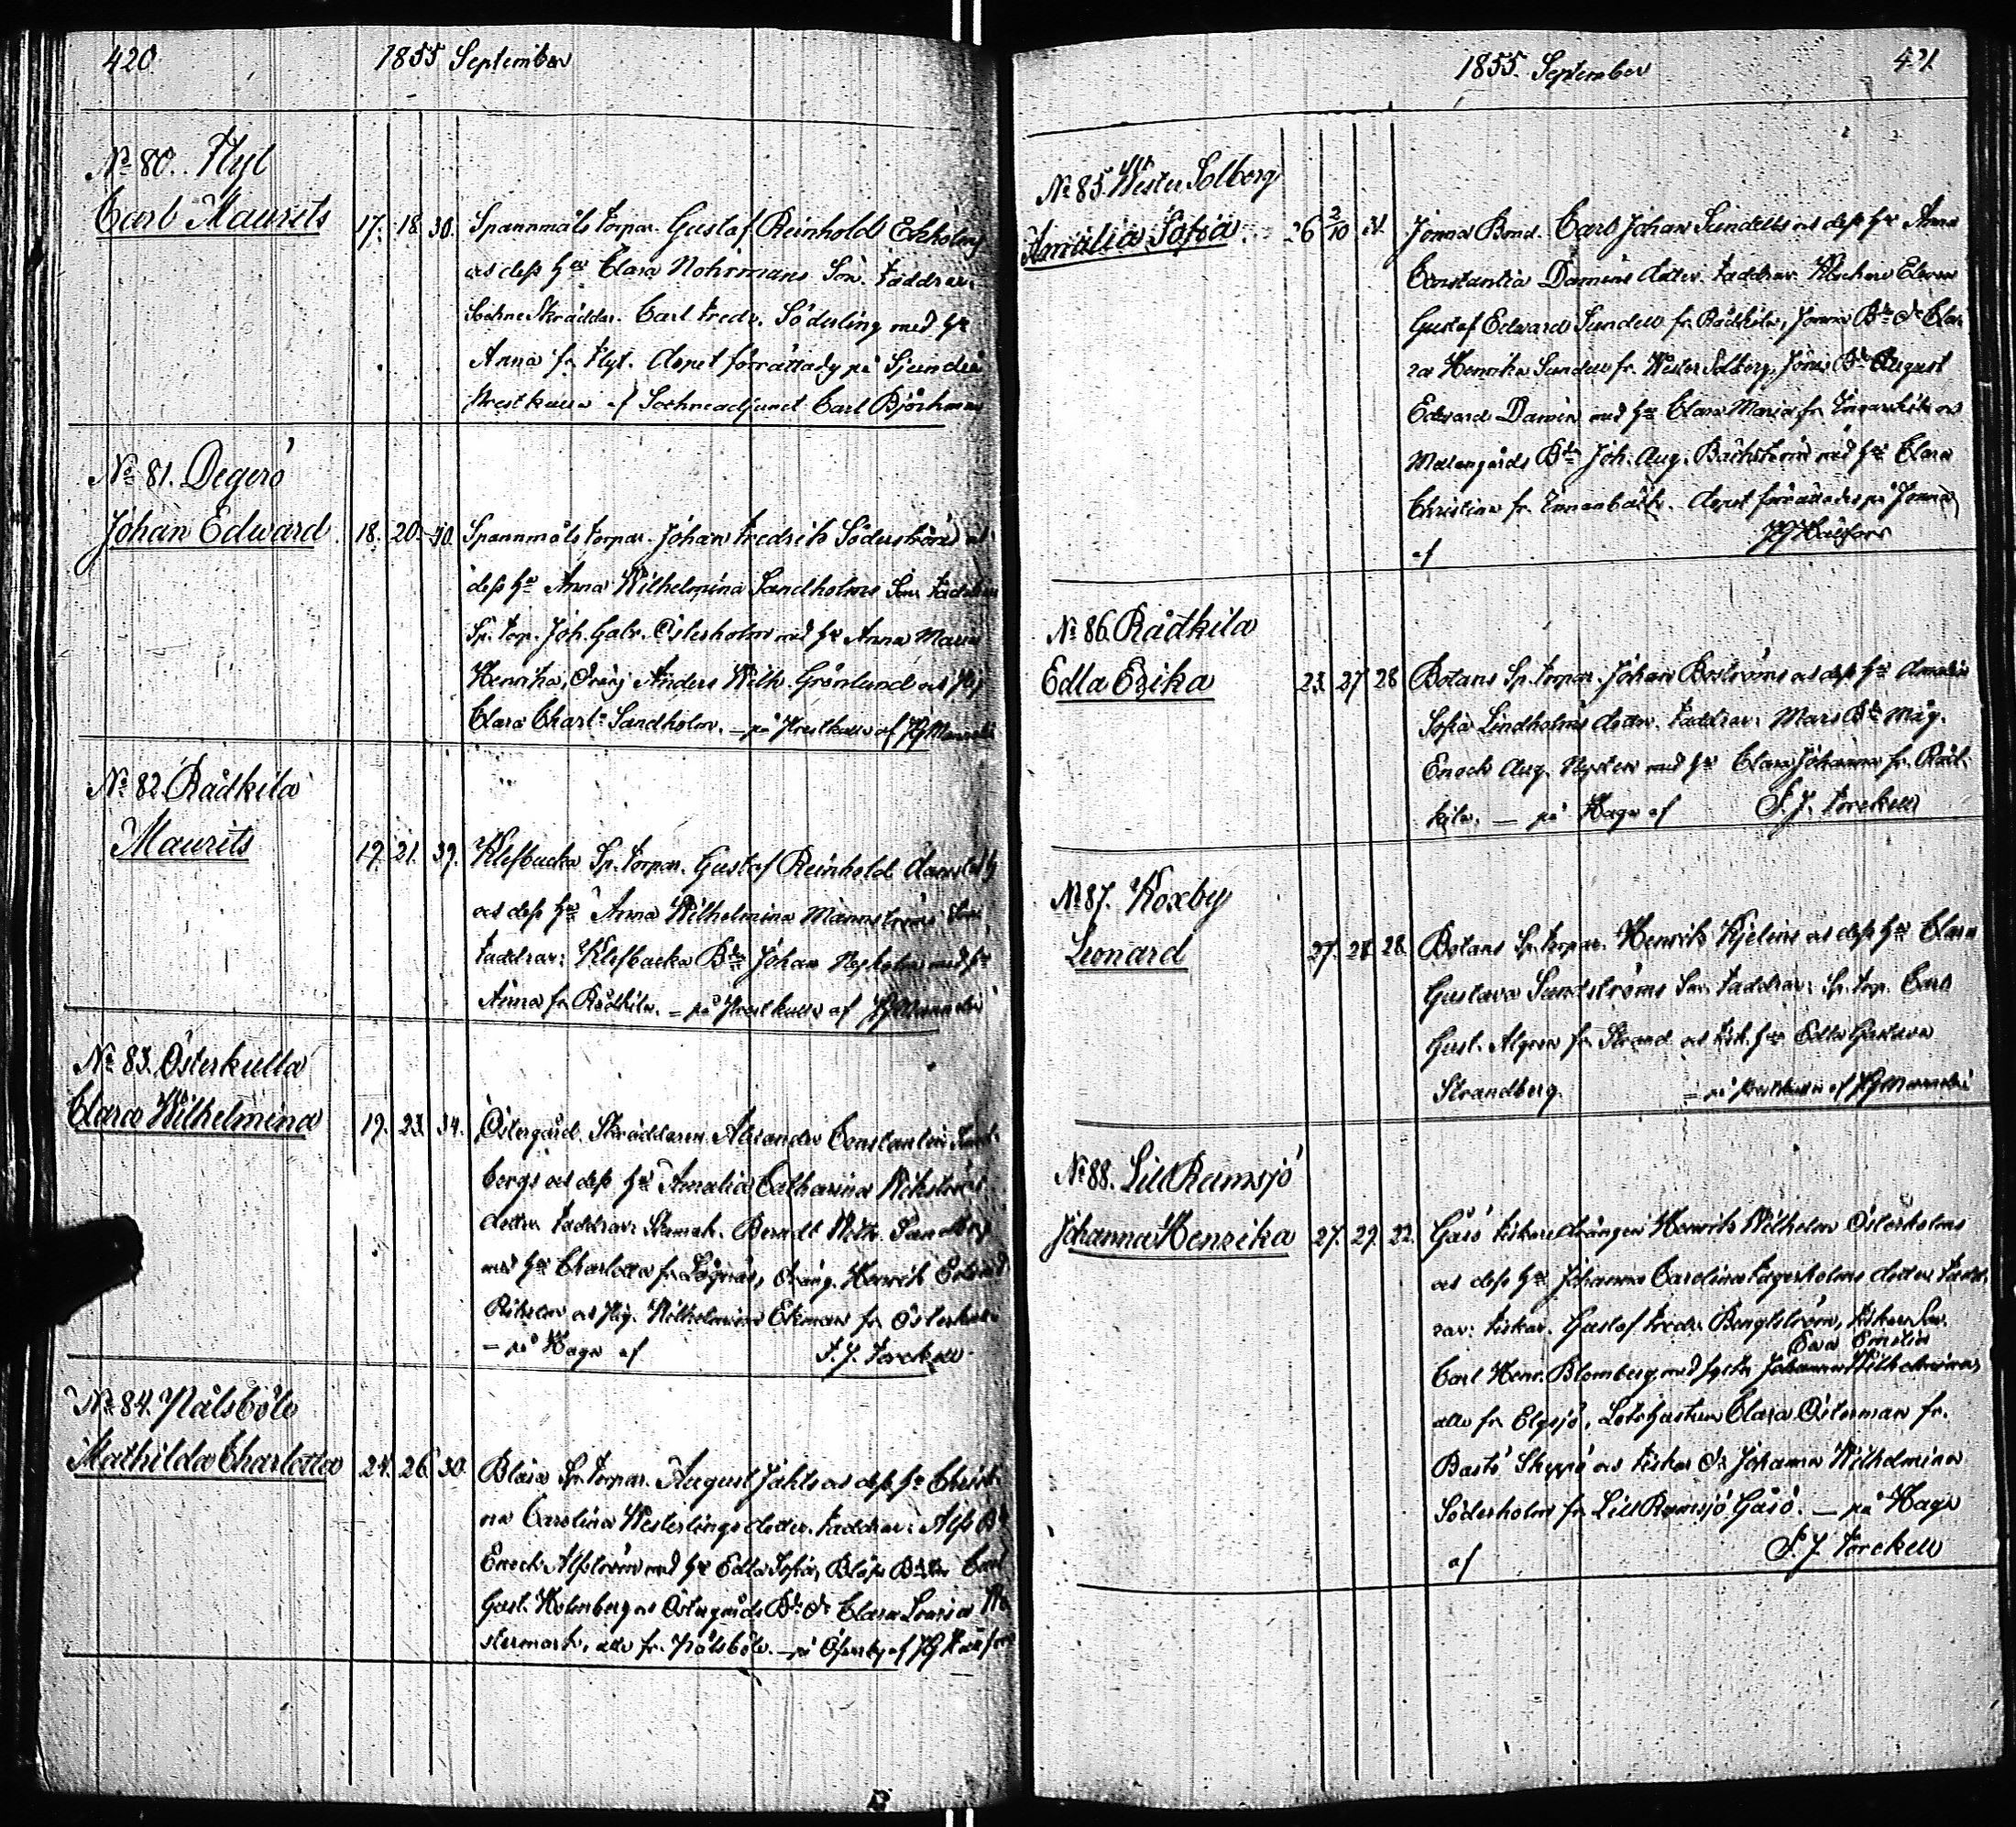 420 1855 September
No 80. Flyt
Carl Maurits 17. 18. 30. Spannmåls torpar. Gustaf Reinhold Ekholms
och dess hu Clara Nohrmans Son. Faddrar:
Sockne Skräddar. Carl Fredr. Söderling med hu
Anna fr. Flyt. Dopet förrättadz på Sjundeå
Prestkulla af Sockneadjunct Carl Björkman
No 81. Degerö
Johan Edward. 18. 20. 40. Spannmåls torpar. Johan Fredrik Söderströms och
dess hu Anna Wilhelmina Sandholms Son. Faddrar
Sp. torp. Joh. Gabr. Österholm med hu Anna Maria
Henrika, Dräng Anders Wilh. Grönlund och Pig
Clara Charl. Sandholm. – på Prestkulla af
No 82. Rådkila
Maurits 19. 21. 39. Klefbacka Sp. torpar. Gustaf Reinhold
och dess hu Anna Wilhelmina Mannströms Son
Faddrar: Klefbacka Bd Johan med hu
Anna fr. Rådkila. – på Prestkulla af
No 83. Österkulla
Clara Wilhelmina 19. 23. 34. Östergård. Skräddaren Alexander Constantin Sand-
bergs och dess hu Amalia Catharina
dotter. Faddrar: Skomak. Berndt Wilh. Sandberg
med hu Charlotta fr. Lågnäs, Dräng. Henrik
och Pig. Wilhelmina Ekman fr. Österkulla
– på Haga af F. J. Forckell
No 84. Pålsböle
Mathilda Charlotta 24. 26. 30. Bläsa Sp. torpar. August Jahls och dess hu Christi-
na Carolina Westerlings dotter. Faddrar: Alfs Bd
Enoch Alfström med hu Edla Sofia, Bläsa Carl
Gust. Holmberg och Östergårds Bd dr Clara Lovisa We-
stermark, alla fr. Pålsböle. – på Öfverby af
1855. September 421
No 85. Wester Solberg
Amalia Sofia. 26 2/10 31. Jonna Bond. Carl Johan Sundells och dess hu Anna
Constantia Damins dotter. Faddrar:
Gustaf Edward Sundell fr. Rådkila, Jonna Bd dr Cla-
ra Henrika Sundell fr. Wester Solberg, Jöns Bd August
Edward Damin med hu Clara Maria fr. Ingarskila och
Mellangårds Bd Joh. Aug. Bäckström med hu Clara
Christina fr. Innanbäck. Dopet förrättades på Jonna
af
No 86. Rådkila
Edla Erika 23. 27. 28 Botans Sp. torpar. Johan Boströms och dess hu Amalia
Sofia Lindholms dotter. Faddrar: Mars Bd Måg.
Enoch Aug. med hu Clara Johanna fr. Råd-
kila. – på Haga af F. J. Forckell
No 87. Koxby
Leonard 27. 28. 28. Botans Sp. torpar. Henrik Kjelins och dess hu Clara
Gustava Sundströms Son. Faddrar: Sp. torp. Carl
Gust. Algren fr. Strand och hu Edla Gustava
Strandberg. – på Prestkulla af
No 88. Lill Ramsjö
Johanna Henrika 27. 29. 22. Gåsö Fiskaredrängen Henrik Wilhelm Österholms
och dess hu Johanna Carolina Fagerholms dotter. Fadd-
rar: Fiskar. Gustaf Fredr. Bengtström, Fiskare Son.
Eva Emilia
Carl Henr. Blomberg med syster Johanna Wilhelmina,
alla fr. Elgsjö, Lotshustrun Clara Österman fr.
Bastö och Fiskar dr Johanna Wilhelmina
Söderholm fr. Lill Ramsjö Gåsö. – på Haga
af F. J. Forckell